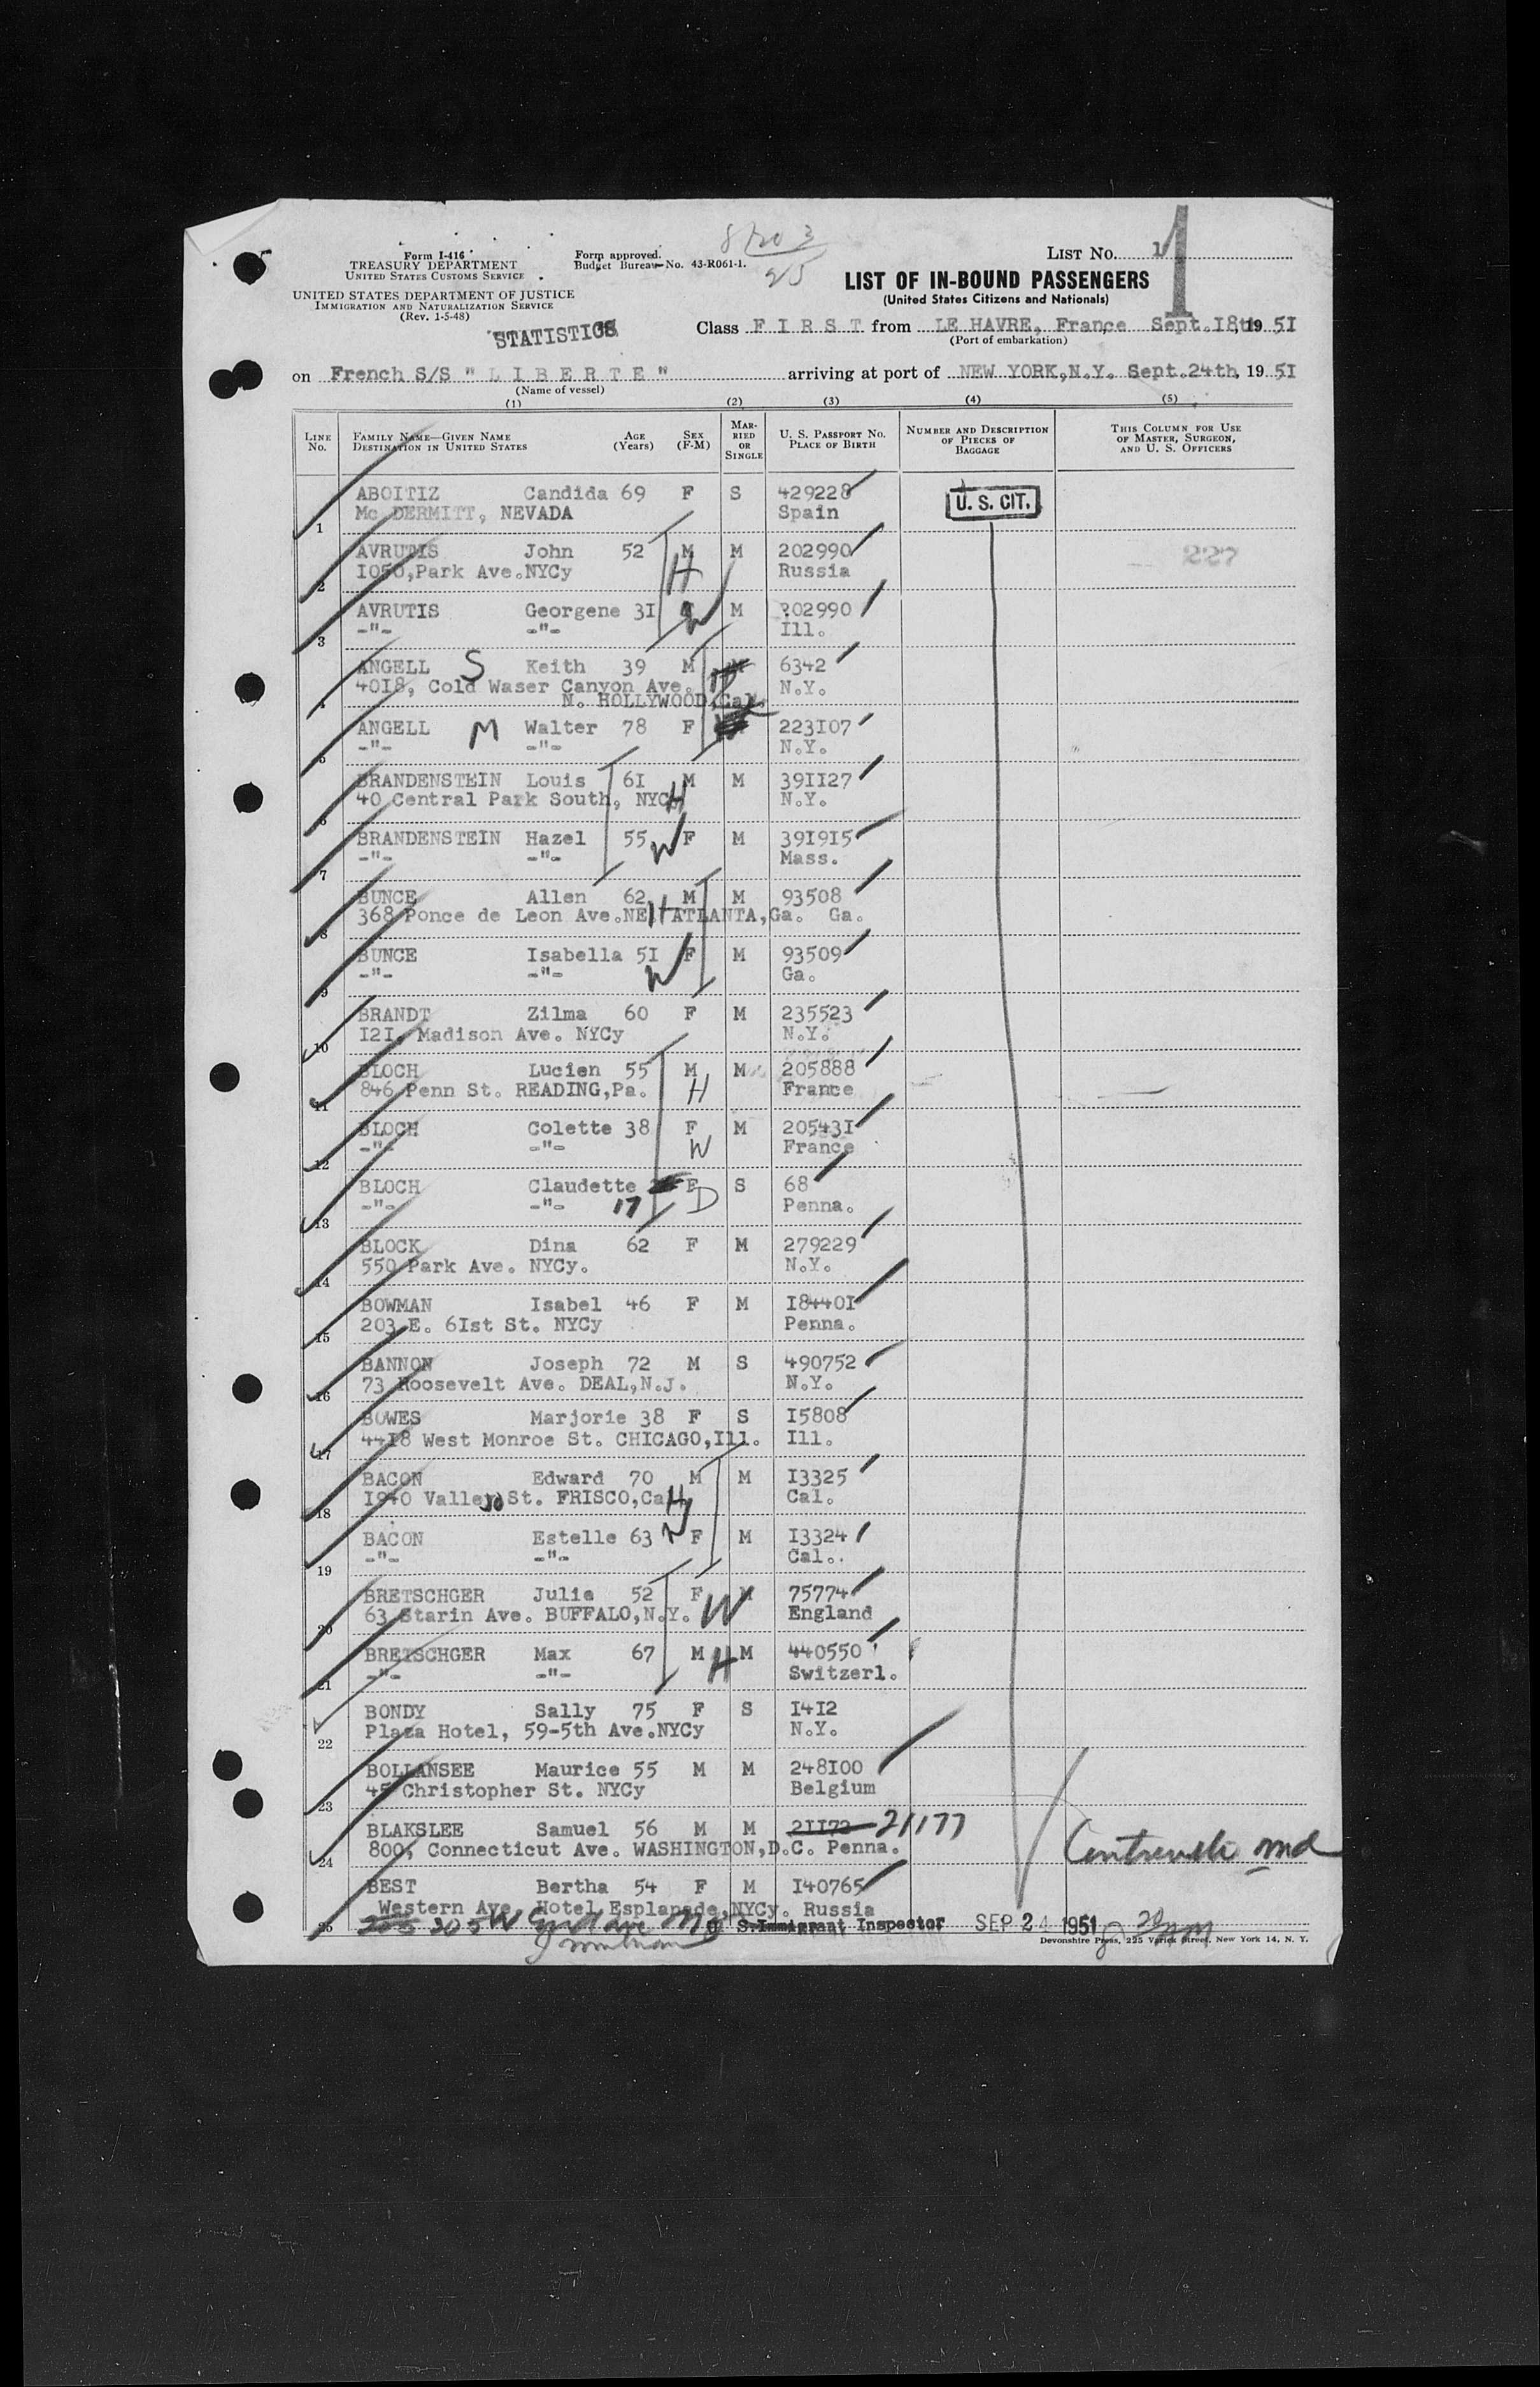 Form I-416
TREASURY DEPARTMENT
UNITED STATES CUSTOMS SERVICE
UNITED STATES DEPARTMENT OF JUSTICE
IMMIGRATION AND NATURALIZATION SERVICE
(Rev. 1-5-48)
Form approved.
Budget Bureau No. 43-R061-1.
25
STATISTICS
LIST NO. 1
1
LIST OF IN-BOUND PASSENGERS
(United States Citizens and Nationals)
Class F I R S T from LE HAVRE, France Sept.I8th, 19 5I
(Port of embarkation)
on French S/S " L I B E R T E " arriving at port of NEW YORK,N.Y. Sept.24th, 19 5I
(Name of vessel)
(1) (2) (3) (4) (5)
LINE No. FAMILY NAME—GIVEN NAME DESTINATION IN UNITED STATES AGE (Years) SEX (F-M) MARRIED OR SINGLE U. S. PASSPORT NO. PLACE OF BIRTH NUMBER AND DESCRIPTION OF PIECES OF BAGGAGE THIS COLUMN FOR USE OF MASTER, SURGEON, AND U. S. OFFICERS
ABOITIZ Candida 69 F S 429228 U. S. CIT.
1 Mc DERMITT, NEVADA Spain
AVRUTIS John 52 M M 202990 227
2 I050,Park Ave.NYCy H Russia
AVRUTIS Georgene 3I W M 202990
3 -"- -"- Ill.
ANGELL S Keith 39 M 6342
4 40I8, Cold Waser Canyon Ave. N.Y.
N. HOLLYWOOD,Cal.
ANGELL M Walter 78 F 223I07
5 -"- -"- N.Y.
BRANDENSTEIN Louis 6I M M 39II27
6 40 Central Park South, NYCy H N.Y.
BRANDENSTEIN Hazel 55 W F M 39I9I5
7 -"- -"- Mass.
BUNCE Allen 62 M M 93508
8 368 Ponce de Leon Ave.NE. H ATLANTA,Ga. Ga.
BUNCE Isabella 5I F M 93509
9 -"- -"- W Ga.
BRANDT Zilma 60 F M 235523
10 I2I, Madison Ave. NYCy N.Y.
BLOCH Lucien 55 M M 205888
11 846 Penn St. READING,Pa. H France
BLOCH Colette 38 F M 20543I
12 -"- -"- W France
BLOCH Claudette F S 68
13 -"- -"- 17 D Penna.
BLOCK Dina 62 F M 279229
14 550 Park Ave. NYCy. N.Y.
BOWMAN Isabel 46 F M I8440I
15 203 E. 6Ist St. NYCy Penna.
BANNON Joseph 72 M S 490752
16 73 Roosevelt Ave. DEAL,N.J. N.Y.
BOWES Marjorie 38 F S I5808
17 44I8 West Monroe St. CHICAGO,Ill. Ill.
BACON Edward 70 M M I3325
18 I940 Vallejo St. FRISCO,Cal H Cal.
BACON Estelle 63 W F M I3324
19 -"- -"- Cal.
BRETSCHGER Julia 52 F M 75774
20 63 Starin Ave. BUFFALO,N.Y. W England
BRETSCHGER Max 67 M H M 440550
21 -"- -"- Switzerl.
BONDY Sally 75 F S I4I2
22 Plaza Hotel, 59-5th Ave.NYCy N.Y.
BOLLANSEE Maurice 55 M M 248I00
23 45 Christopher St. NYCy Belgium
BLAKSLEE Samuel 56 M M 2II72 21177
24 800, Connecticut Ave. WASHINGTON,D.C. Penna. Centreville Md
BEST Bertha 54 F M I40765
Western Ave. Hotel Esplanade,NYCy. Russia
25 205 W S. Immigrant Inspector SEP 24 1951
Devonshire Press, 225 Varick Street, New York 14, N. Y.